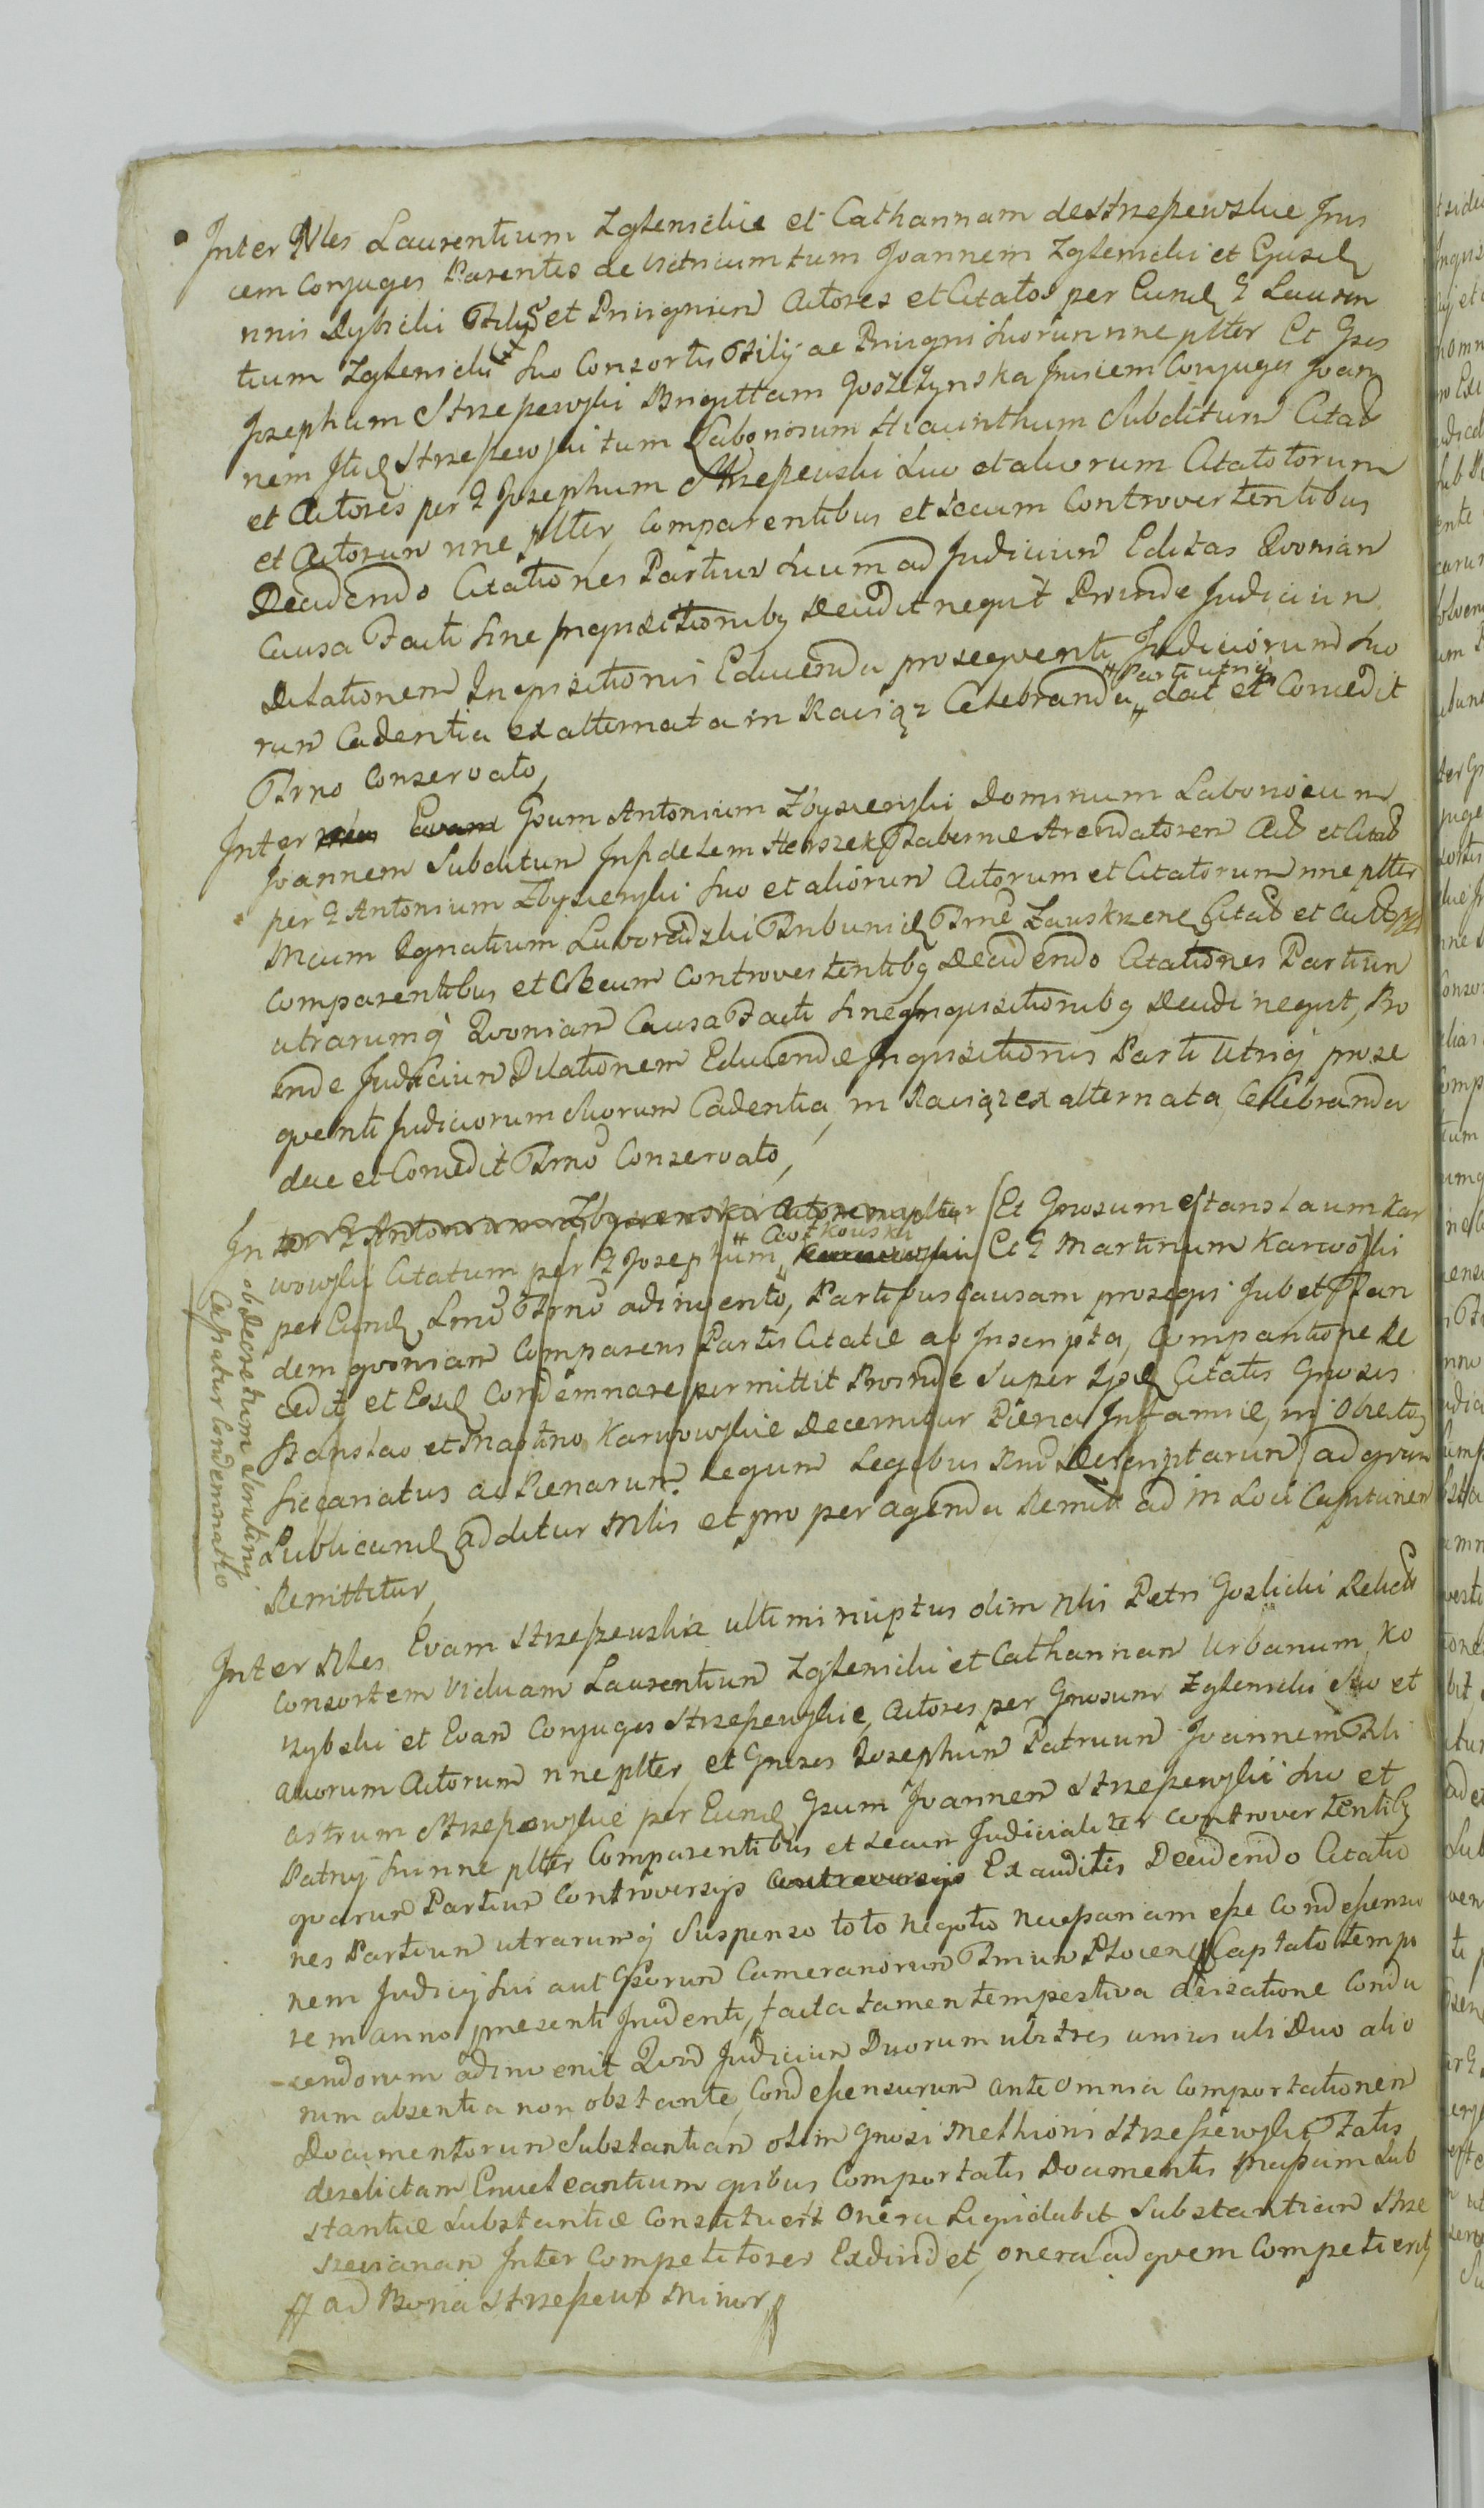 Inter Nles Laurentium Zglenickie et Cathannam de Strzepewskie Invi
cem Conjuges Parentes de Vitricum tum Joannem Zglenicki et Ejusd
nnis Rybicki Filios et Privignum Actores et Citatos per Eund G Lauren
tium Zglenicki suo Consortis Filij ac Privigni suorum nne plter Et Gsos
Josephum Strzepewski Brigittam Goszczynska Invicem Conjuges Joan
nem Itid Strzepewski tum Laboriosum Hiacinthum Subditum Citat
et Actores per G Josephum Strzepewski suo et aliorum Citatotorum
et Actorum nne plter, Comparentibus et secum Controvertentibus
Decidendo Citationes Partium suum ad Judicium Editas Qvoniam
Causa Facti sine Inqvisitionibq Decidit neqvit Proinde Judicium
Dilationem Inqvisitionis Educenda proseqventi Judiciorum suo
rum Cadentia ex alternata in Raciąz Celebranda " Parti utriq " dat et Concedit
Trno Conservato,
Inter Gsum Antonium Zbysienski Dominum Laboriosum
Joannem Subditum Infidelem Herszek Tabernae Arendatorem Act et Citat
per G Antonium Zbysienski suo et aliorum Actorum et Citatorum nne plter
Mcum Ignatium Lavoradzki Tribunid Trne Zauskrzene Citat et Act
Comparentibus et secum Controvertentibq Decidendo Citationes Partium
utrarumq Qvoniam Causa Facti sine Inqvisitionibq Decidi neqvit, Pro
inde Judicium Dilationem Educendae Inqvisitionis Parti Utriq prose
qventi Judiciorum suorum Cadentia, in Raciąz ex alternata, Celebranda
dat et Concedit Trno Conservato,
Inter G Antonium Zbysienski Actorem nplter Et Gnosum Stanslaum Kar
wowski Citatum per G Josephum " Cwotkouski Et G Martinum Karwowski
per Eund Lmo Trno adinvento, Partibus Causam proseqvi Jubet, Tan
dem qvoniam Comparens Partis Citatae ab Inscripta, Compantione Re
cedit, et Eosd Condemnare permittit Proinde Super Ipsq Citatis Gnosis
Stanslao et Martino Karwowskie Decernitur Paena Infamiae, in Obiectoq
siccariatus ac Paenarum Legum Legibus Rnd Descriptarum ad qvam
Publicand additur Mlis et pro peragenda Remitt ad in Loci Capturien
Remittitur,
ob decretum Scrutiny
Cassatur Condemnatio
Inter Nles Evam Strzepewskie ultimi nuptus olim Nlis Petri Goslicki Relict
Consortem Viduam Laurentium Zglenicki et Cathannam Urbanum Ko
rzybski et Evam Conjuges Strzepewskie, Actores per Gnosum Zglenicki Suo et
aliorum Actorum nne plter, et Gnosos Josephum Patruum Joannem Fili
astrum Strzepewskie per Eund Gsum Joannem Strzepewski suo et
Patrij sui nne plter Comparentibus et secum Judicialiter controvertentibq
qvarum Partium Controversijs Controversijs Exauditis Decidendo Citatio
nes Partium utrarumq Suspenso toto negotio necessariam esse Condesensio
nem Judicij sui aut Gsorum Cameranorum Trnum Plocen Captato tempo
re in anno praesenti Incidenti, facta tamen tempestiva aeisatione Condu
cendorum adinvenit Quod Judicium Duorum ubi tres unius ubi Duo alio
rum absentia non obstante, Condesensurum ante omnia Comportationem
Documentorum Substantiam olim Gnosi Methioni Strzepewski Fatis
derelictam Enucleantium qvibus Comportatis Documentis Massam Sub
stantiae Substantiae Constituent onera Liqvidabit Substantiam Strze
szewianam Inter Competitores Exdividet, onera ad qvem Competient,
ff ad Bona Strzepewo Minor